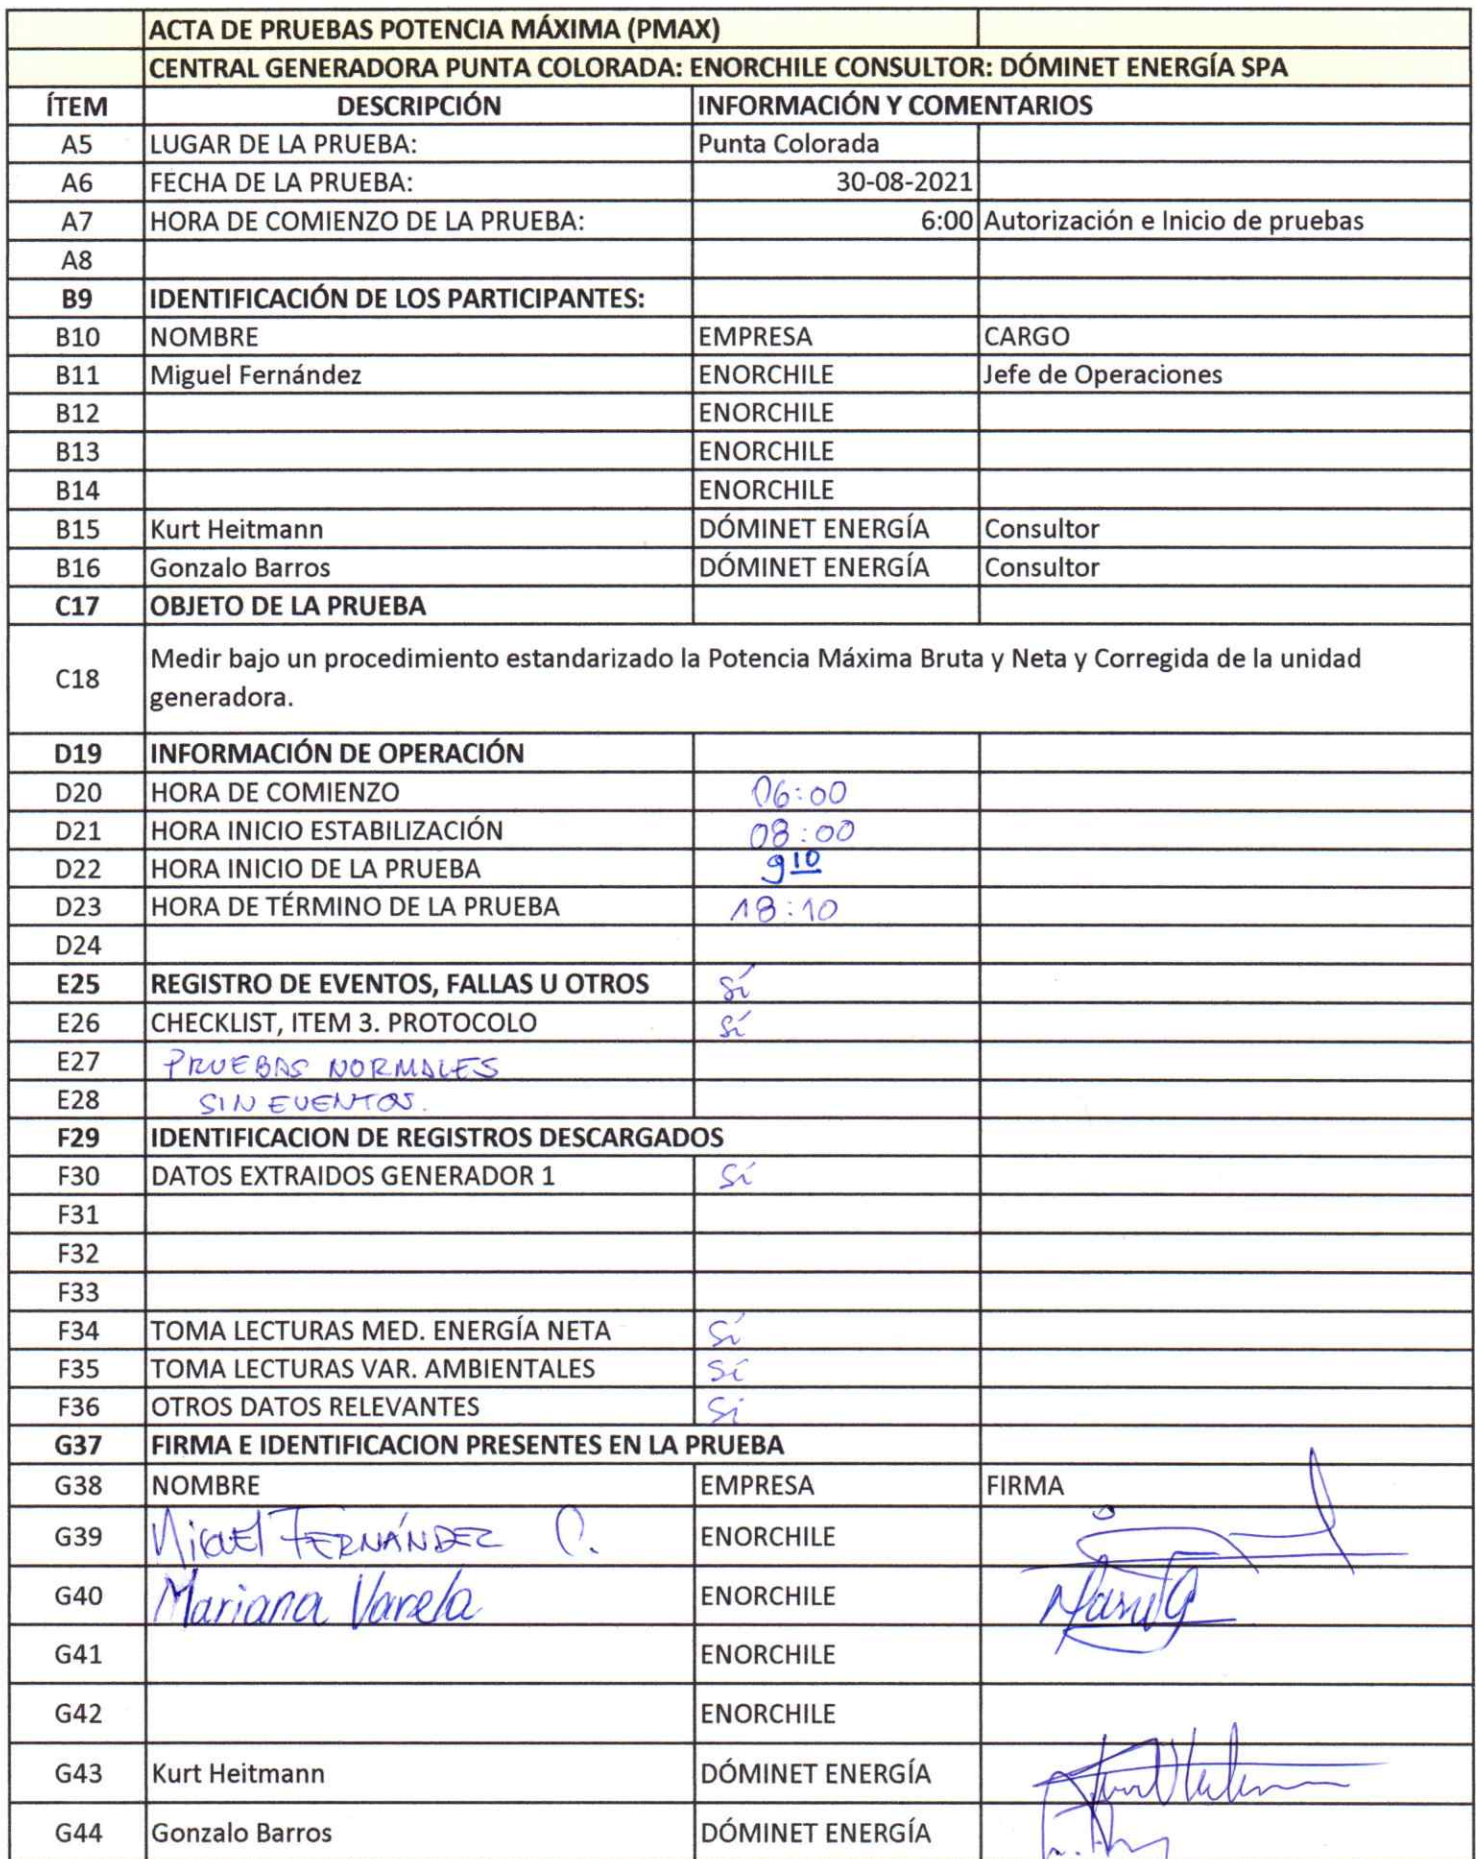 ACTA DE PRUEBAS POTENCIA MÁXIMA (PMAX)
CENTRAL GENERADORA PUNTA COLORADA: ENORCHILE CONSULTOR: DÓMINET ENERGÍA SPA
ÍTEM DESCRIPCIÓN INFORMACIÓN Y COMENTARIOS
A5 LUGAR DE LA PRUEBA: Punta Colorada
A6 FECHA DE LA PRUEBA: 30-08-2021
A7 HORA DE COMIENZO DE LA PRUEBA: 6:00 Autorización e Inicio de pruebas
A8
B9 IDENTIFICACIÓN DE LOS PARTICIPANTES:
B10 NOMBRE EMPRESA CARGO
B11 Miguel Fernández ENORCHILE Jefe de Operaciones
B12 ENORCHILE
B13 ENORCHILE
B14 ENORCHILE
B15 Kurt Heitmann DÓMINET ENERGÍA Consultor
B16 Gonzalo Barros DÓMINET ENERGÍA Consultor
C17 OBJETO DE LA PRUEBA
C18 Medir bajo un procedimiento estandarizado la Potencia Máxima Bruta y Neta y Corregida de la unidad
generadora.
D19 INFORMACIÓN DE OPERACIÓN
D20 HORA DE COMIENZO 06:00
D21 HORA INICIO ESTABILIZACIÓN 08:00
D22 HORA INICIO DE LA PRUEBA 9 10
D23 HORA DE TÉRMINO DE LA PRUEBA 18:10
D24
E25 REGISTRO DE EVENTOS, FALLAS U OTROS Sí
E26 CHECKLIST, ITEM 3. PROTOCOLO Sí
E27 PRUEBAS NORMALES
E28 SIN EVENTOS.
F29 IDENTIFICACION DE REGISTROS DESCARGADOS
F30 DATOS EXTRAIDOS GENERADOR 1 Sí
F31
F32
F33
F34 TOMA LECTURAS MED. ENERGÍA NETA Sí
F35 TOMA LECTURAS VAR. AMBIENTALES Sí
F36 OTROS DATOS RELEVANTES Si
G37 FIRMA E IDENTIFICACION PRESENTES EN LA PRUEBA
G38 NOMBRE EMPRESA FIRMA
G39 MiGUEl FERNÁNDEZ O. ENORCHILE
G40 Mariana Varela ENORCHILE
G41 ENORCHILE
G42 ENORCHILE
G43 Kurt Heitmann DÓMINET ENERGÍA
G44 Gonzalo Barros DÓMINET ENERGÍA